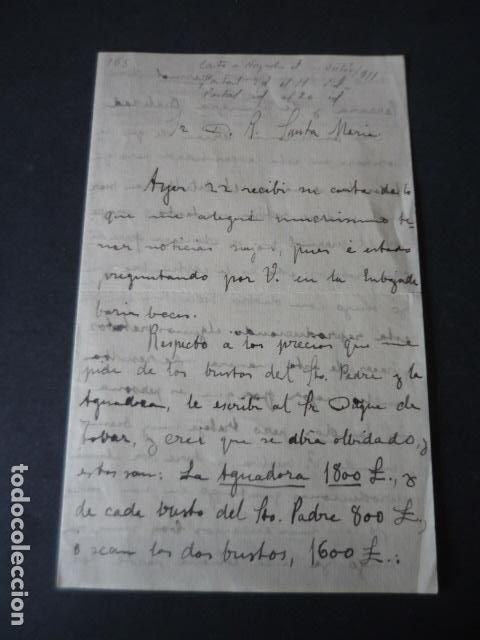 165
Sr D. R. Santa Maria
Ayer 22 recibi su carta de lo
que me alegré muchissimo te-
ner noticias suyas, pues é estado
preguntando por V. en la Enbajada
barias beces.
Respecto a los precios que me
pide de los bustos del Sto. Padre y la
Aguadora, le escribi al Sr Duque de
Tobar, y crei que se abia olbidado, y
estos son: La Aguadora 1800 £., y
de cada busto del Sto. Padre 800 £.,
o sean los dos bustos, 1600 £.:
todocoleccion.net